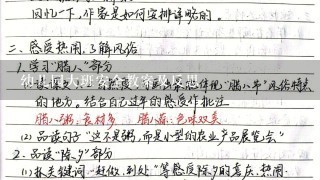 回忆一下,作家是如何安排详略的。
二、感受热闹,了解风俗
1.学习“腊八”部分
幼儿园大班安全教案及反思
体现“腊八节”风俗特点
的地方。结合自己过年的感受作批注
腊八粥:食材多 腊八蒜:色味双美
(2)品读句子“这不是粥,而是小型的农业产品展览会”
2.品读“除夕”部分
(1)抓关键词“赶做、到处”等感悟除夕的喜庆、热闹